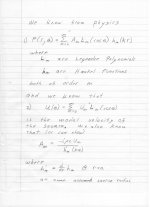 We know from physics
1) P(r,θ) = ∞ Σ n=0 A_n L_n (cos θ) h_n (kr)
where
L_n are Legendre Polynomials
h_n are Hankel functions
both of order n
and we know that
2) U(θ) = ∞ Σ n=0 U_n L_n (cos θ)
is the modal velocity of
the source, we also know
that (1) can show
A_n = -iρc U_n / h_n' (ka)
where
r=a
a = some assumed source radius